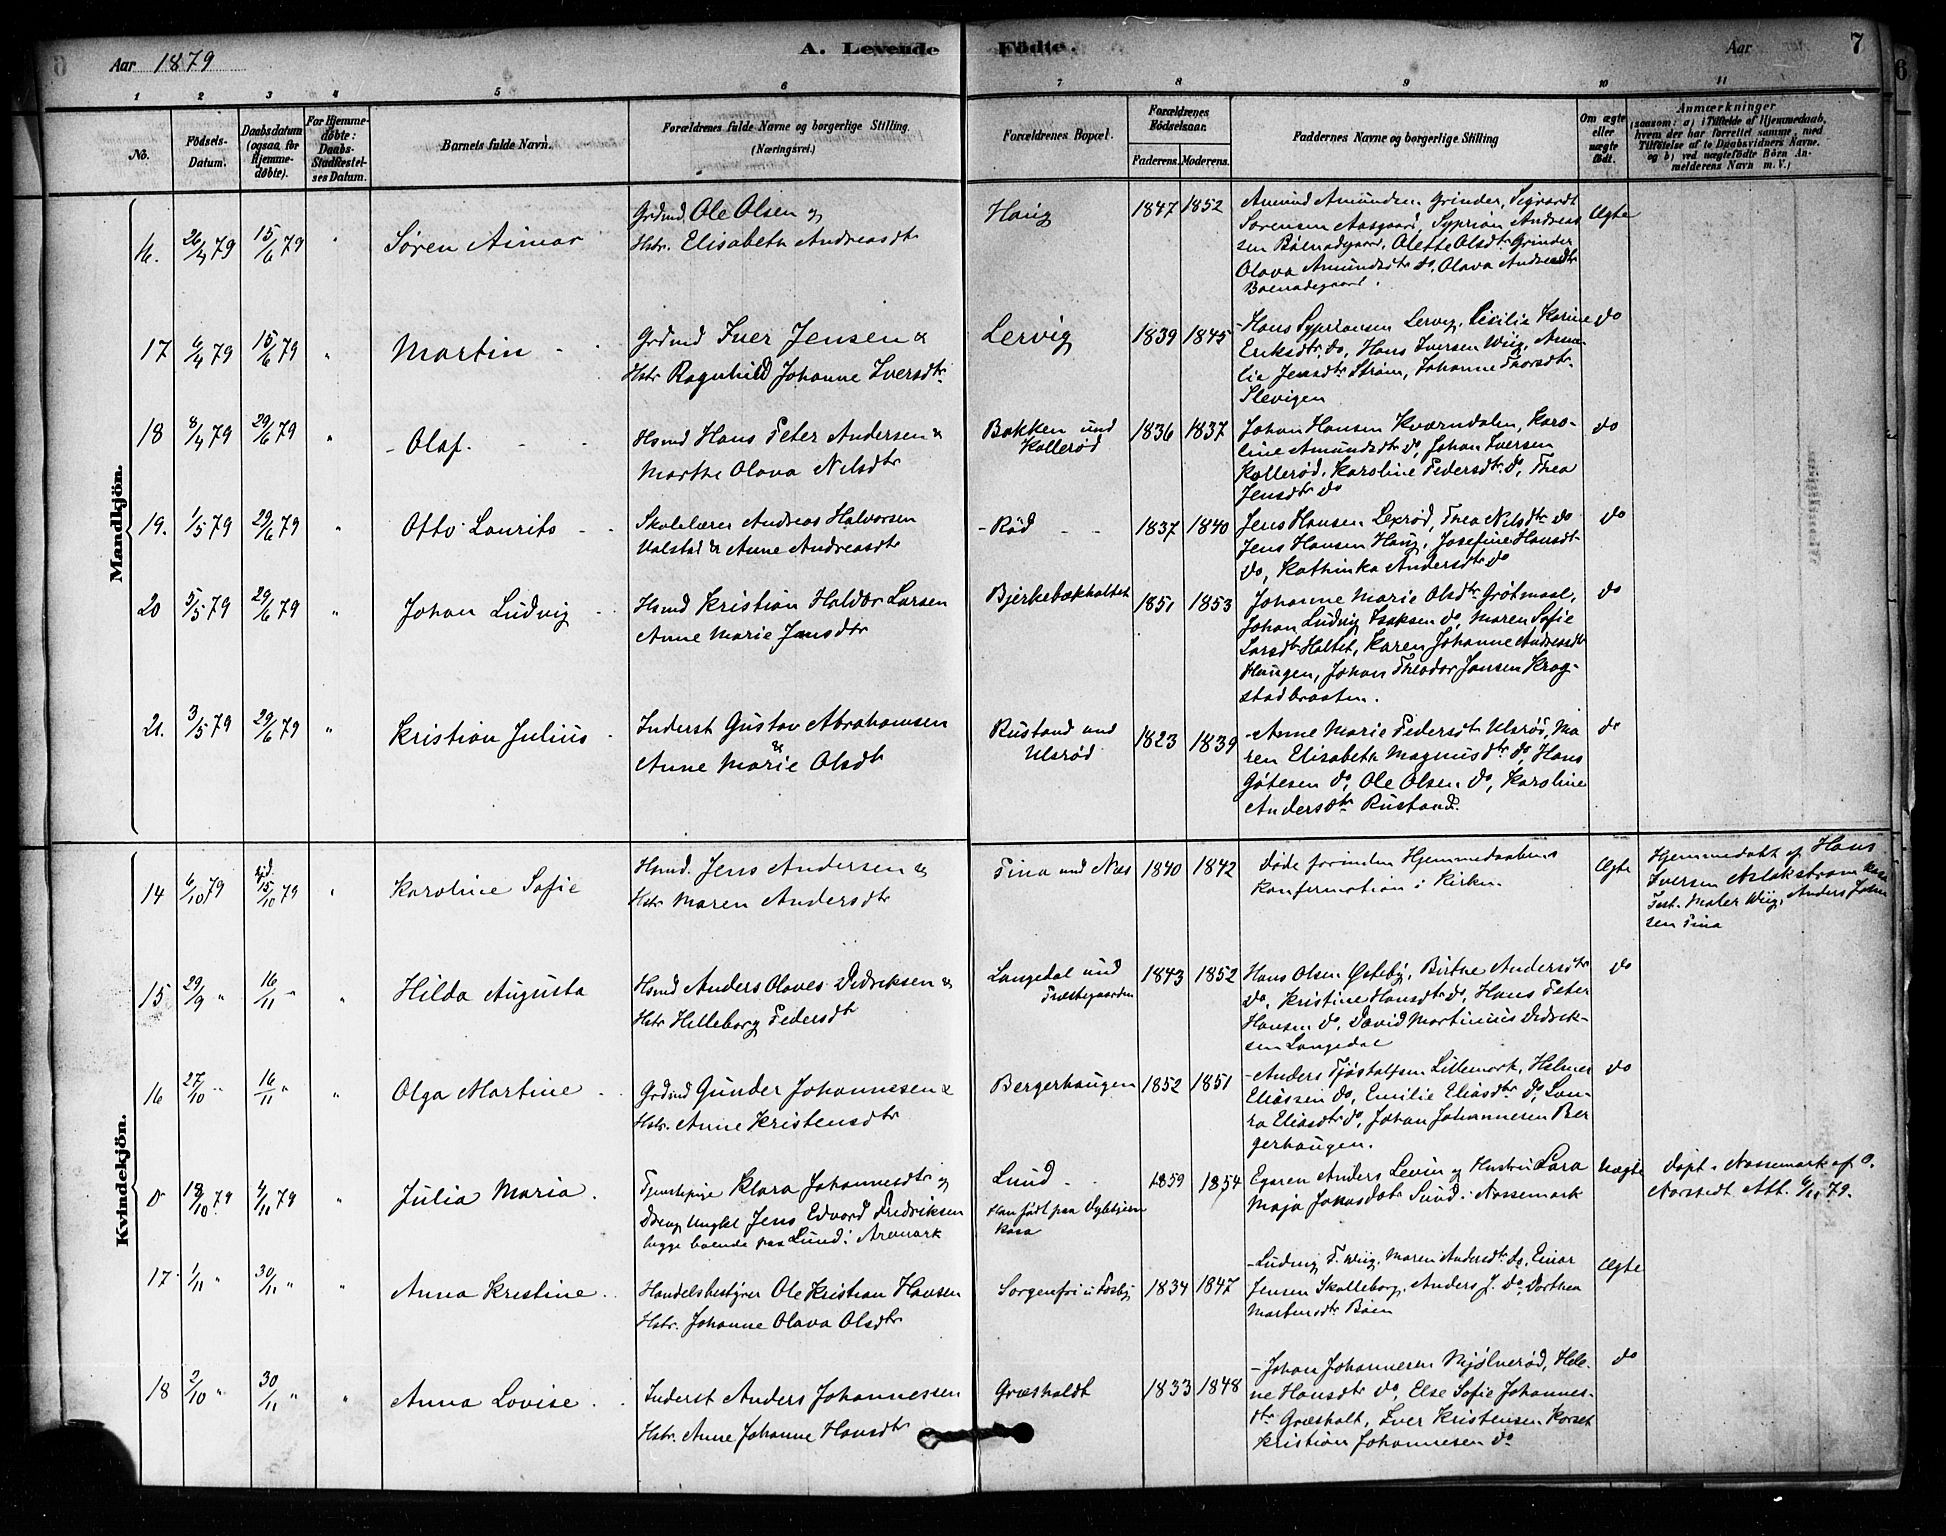 Aar 1879
A. Levende Födte.
Aar
7
1 2 3 4 5 6 7 8 9 10 11
No.
Födsels-Datum.
Daabsdatum (ogsaa for Hjemme-døbte).
For Hjemme-døbte: Daabs-Stadfæstel-ses Datum.
Barnets fulde Navn.
Forældrenes fulde Navne og borgerlige Stilling. (Næringsvei.)
Forældrenes Bopæl.
Forældrenes Födselsaar.
Faderens. Moderens.
Faddernes Navne og borgerlige Stilling
Om ægte eller uægte födt.
Anmærkninger
(saasom: a) i Tilfælde af Hjemmedaab, hvem der har forrettet samme, med Tilföielse af to Daabsvidners Navne. og b) ved uægtefödte Börn Anmelderens Navn m. V.)
Mandkjön.
16. 26/4 79 15/6 79 " Søren Aimar
Grdmd. Ole Olsen og
Hstr. Elisabeth Andreasdtr
Haug 1847 1852
Amund Amundsen Grinder, Sigvardt
Sørensen Aasgaard, Syprian Andreas
sen Bøensdgaard, Olette Olsdtr Grinder
Olava Amundsdtr do, Olava Andreasdtr
Boensdegaard.
Ægte
17 6/4 79 15/6 79 " Martin
Grdmd Iver Jensen &
Hstr Ragnhild Johanne Iversdtr
Lervig 1839 1845
Hans Sypriansen Lervig, Cicilie Karine
Eriksdtr do, Hans Iversen Wiig, Ama-
lie Jensdtr Strøm, Johanne Thorsdtr.
Slevigen
do
18 8/4 79 29/6 79 " Olaf.
Hsmd Hans Peter Andersen &
Marthe Olava Nilsdtr
Bakken und
Kollerød
1836 1837
Johan Hansen Kværndalen, Karo-
line Amundsdtr do, Johan Iversen
Kollerød, Karoline Pedersdtr do, Thea
Jensdtr do
do
19. 1/5 79 29/6 79 " Otto Laurits
Skolelærer Andreas Halvorsen
Valstad & Anne Andreasdtr
Rød 1837 1840
Jens Hansen Lexrød, Thea Nilsdtr do
Jens Hansen Haug, Josefine Hansdt
do, Kathinka Andersdtr do
do
20 5/5 79 29/6 79 " Johan Ludvig
Hsmd Kristian Haldor Larsen
Anne Marie Jensdtr
Bjerkebækholtet 1851 1853
Johanne Marie Olsdtr Grøtmosel,
Johan Ludvig Isaksen do, Maren Sofie
Larsdtr Holtet, Karen Johanne Andreasdt
Haugen, Johan Theodor Jansen Krog-
stadbraaten.
do
21. 3/5 79 29/6 79 " Kristian Julius
Inderst Gustav Abrahamsen
&
Anne Marie Olsdt
Rustand und
Ulsrød
1823 1839
Anne Marie Pedersdtr Ulsrød, Ma
ren Elisabeth Magnusdtr do, Hans
Gøtesen do, Ole Olsen do, Karoline
Andersdtr Rustand.
do
Kvindekjön.
14 6/10 79 15/10 79 " Karoline Sofie
Hsmd. Jens Andersen &
Hstr Maren Andersdtr
Tina und Næs 1840 1842
Døde forinden Hjemmedaabens
Konfirmation i Kirken.
Ægte
Hjemmedøbt af Hans
Iversen
Test. Maler Wiig, Anders
sen Tina
15 29/9 " 16/11 " " Hilda Augusta
Hsmd Anders Olaves Didriksen &
Hstr Helleborg Pedersdt
Langedal und
Præstegaarden
1843 1852
Hans Olsen Østeby, Birthe Andersdtr
do, Kristine Hansdtr do, Hans Peter
Hansen do, David Martinius Didrik-
sen Langedal
do
16 27/10 " 16/11 " " Olga Martine
Grdmd Gunder Johannesen &
Hstr. Anne Kristensdtr
Bergerhaugen 1852 1851
Anders Tjøstolfsen Lillemark, Helmer
Eliassen do, Emilie Eliasdtr do, Lau-
ra Eliasdtr do, Johan Johannesen Ber
gerhaugen.
do
0 18/10 79 4/11 79 " Julia Maria
Tjenstepige Klara Johannesdtr og
Ungkl Jens Edvard Fredriksen
begge boende paa Lund i Aremark
Lund
1859 1854
Egeren Anders Levin og Hustru Lara
Maja Jonasdtr Sund i Nøssemark
Uægte
Døpt i Nøssemark af O.
Norstedt Att. 6/11 79.
17 1/11 " 30/11 " " Anna Kristine
Handelsbestyrer Ole Kristian Hansen
Hstr. Johanne Olava Olsdtr
Sorgenfri u Fosby 1834 1847
Ludvig F. Wiig, Maren Andersdtr do, Einar
Jensen Skolleborg, Anders J. do, Dorthea
Martinsdtr Bøen
Ægte
18 2/10 " 30/11 " " Anna Lovise
Inderst Anders Johannessen
Hstr. Anne Johanne Hansdtr
Græsholdt 1833 1848
Johan Johannesen Mjølnerød, Hele-
ne Hansdtr do, Else Sofie Johannes-
dtr Græsholt, Iver Kristensen Korset
Kristian Johannesen do
do